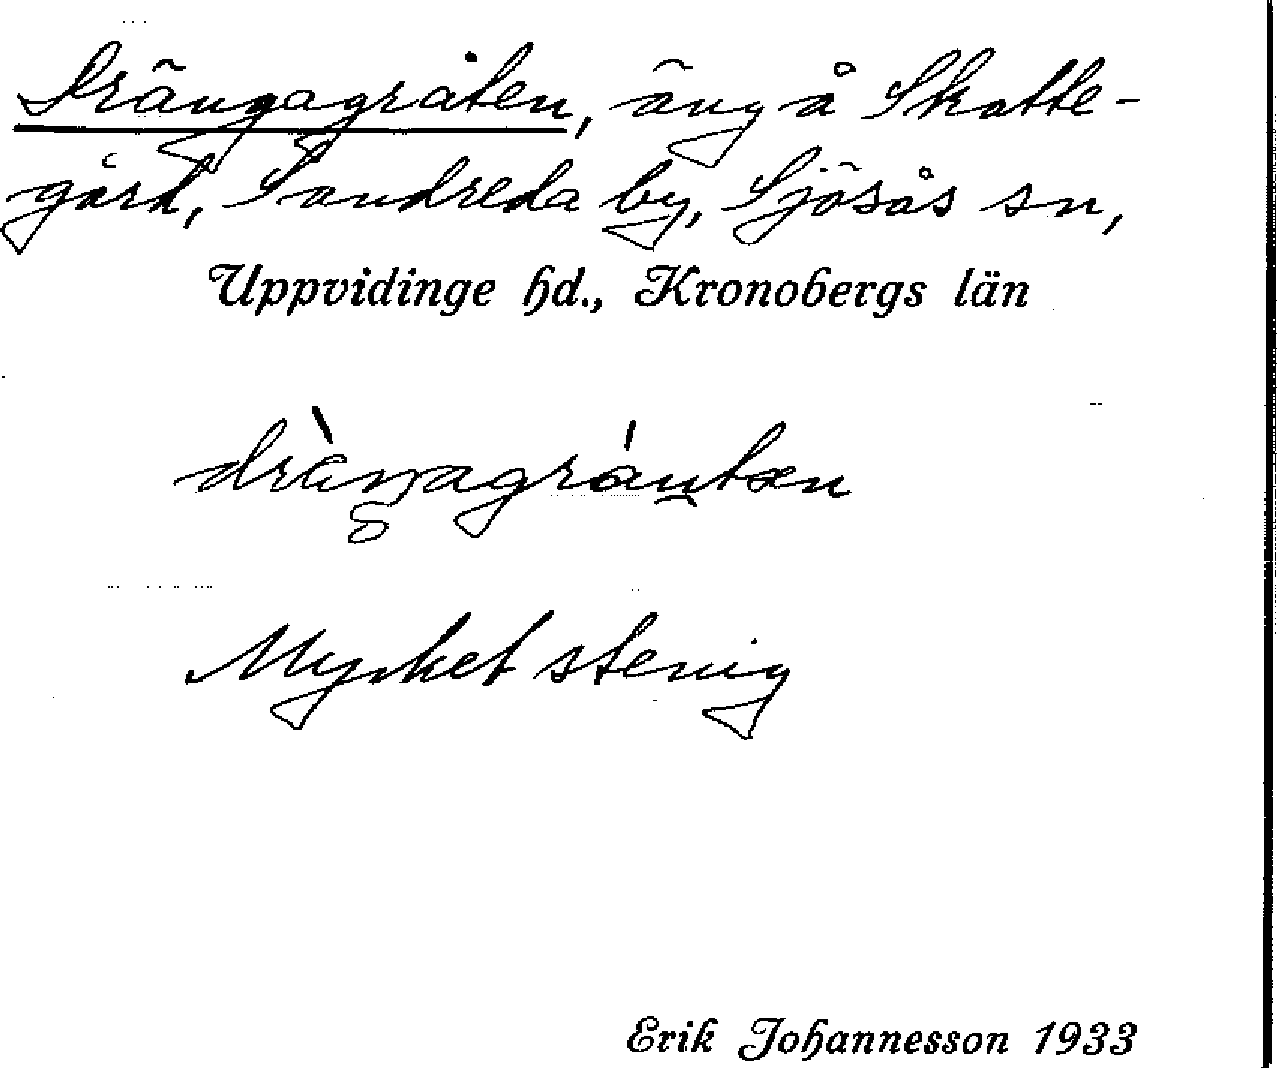 Drängagråten, äng å Skatte-
gård, Sandreda by, Sjösås sn,
Uppvidinge hd., Kronobergs län
Mycket stenig
Erik Johannesson 1933